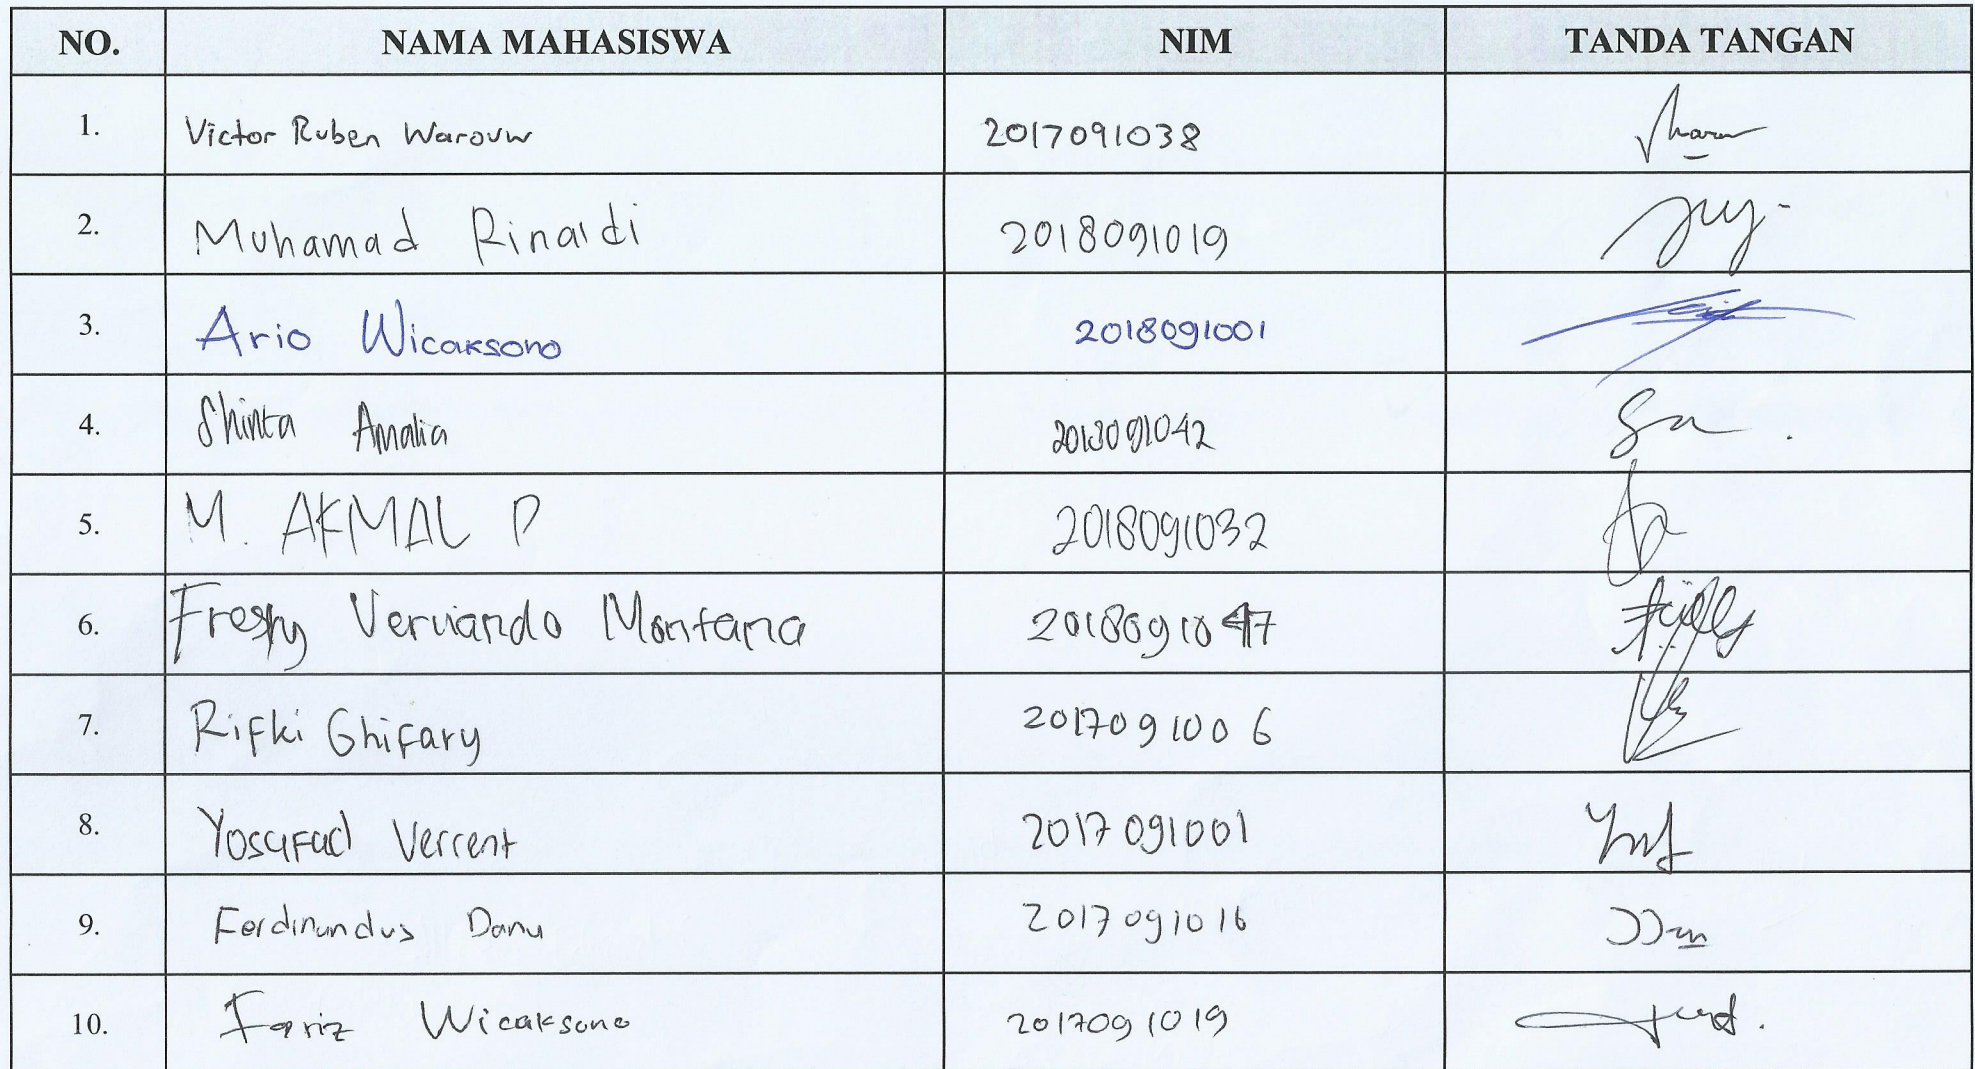 NO. NAMA MAHASISWA NIM TANDA TANGAN
1. Victor Ruben Warouw 2017091038
2. Muhamad Rinaldi 2018091019
3. Ario Wicaksono 2018091001
4. Shinta Amalia
5. M. AKMAL P 2018091032
6. Montana 2018091047
7. Rifki Ghifary 2017091006
8. Yosafad Verrent 2017091001
9. Ferdinandus Danu 2017091016
10. Fariz Wicaksono 2017091019